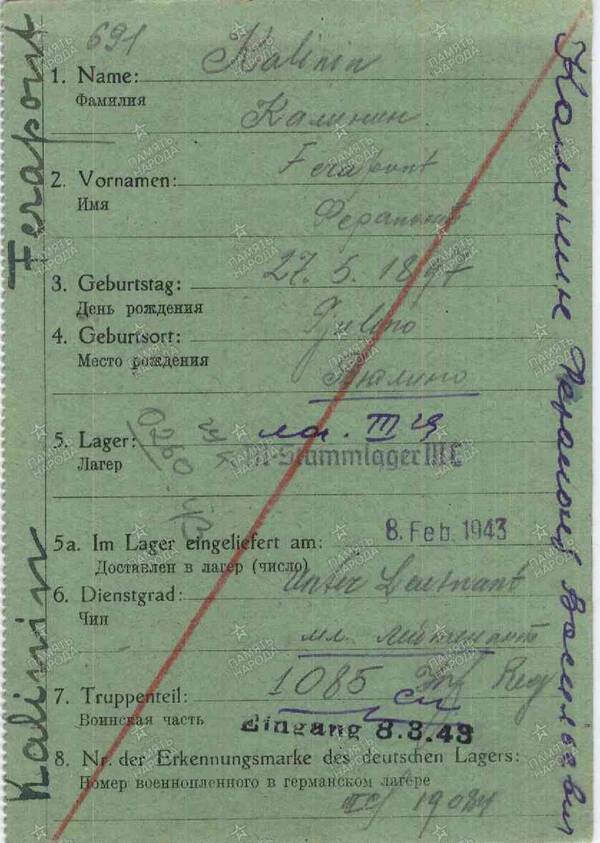 691
Kalinin
1. Name:
Фамилия
Калинин
Ferapont
2. Vornamen:
Имя
Ферапонт
27. 5. 1897
3. Geburtstag:
День рождения
4. Geburtsort:
Место рождения
5. Lager:
Лагерь
III
8. Feb. 1943
5a. Im Lager eingeliefert am:
Доставлен в лагерь (число)
Unter Leutnant
6. Dienstgrad:
Чин
мл. лейтенант
1085 Inf Reg
7. Truppenteil:
Воинская часть
сп
Eingang 8.3.43
8. Nr. der Erkennungsmarke des deutschen Lagers:
Номер военнопленного в германском лагере
Kalinin Ferapont
Калинин Ферапонт Васильевич
ПАМЯТЬ НАРОДА